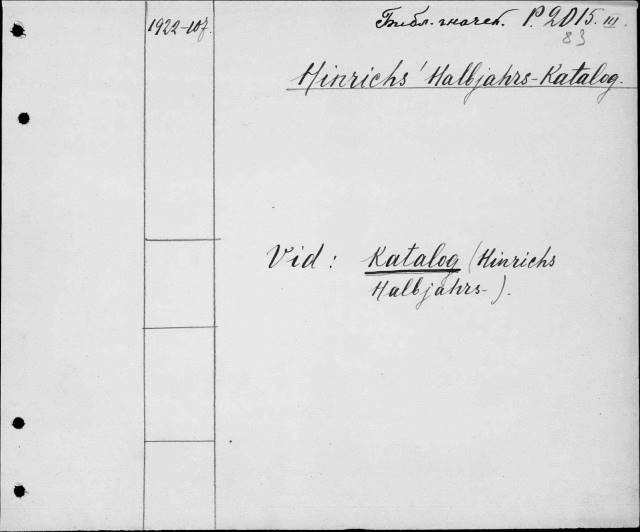 1922-107.
Библ. значек. P. 2015. III.
83
Hinrichs' Halbjahrs-Katalog.
Vid: Katalog (Hinrichs
Halbjahrs-).